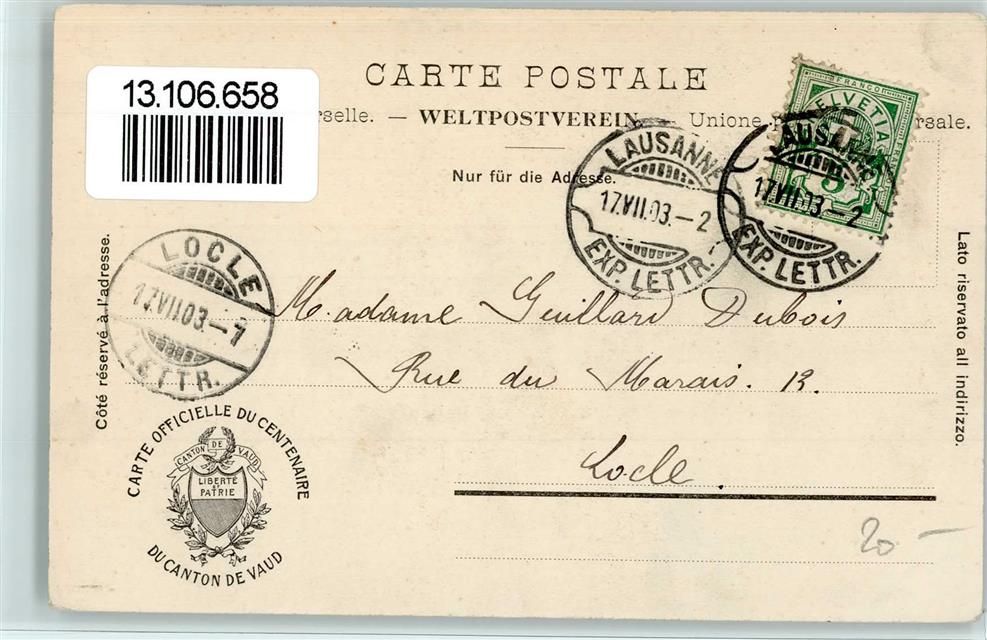 13.106.658
CARTE POSTALE
rselle. — WELTPOSTVEREIN. — Unione rsale.
Nur für die Adresse.
FRANCO
HELVETIA
5
LAUSANNE
17.VII.03.–2
EXP. LETTR.
LAUSANNE
17.VII.03–2
EXP. LETTR.
LOCLE
17.VII.03.–7
LETTR.
Côté réservé à l'adresse.
Lato riservato all indirizzo.
Madame Guillard Dubois
Rue du Marais. 13.
Locle.
CARTE OFFICIELLE DU CENTENAIRE
CANTON DE VAUD
LIBERTÉ
ET
PATRIE
DU CANTON DE VAUD
20.–